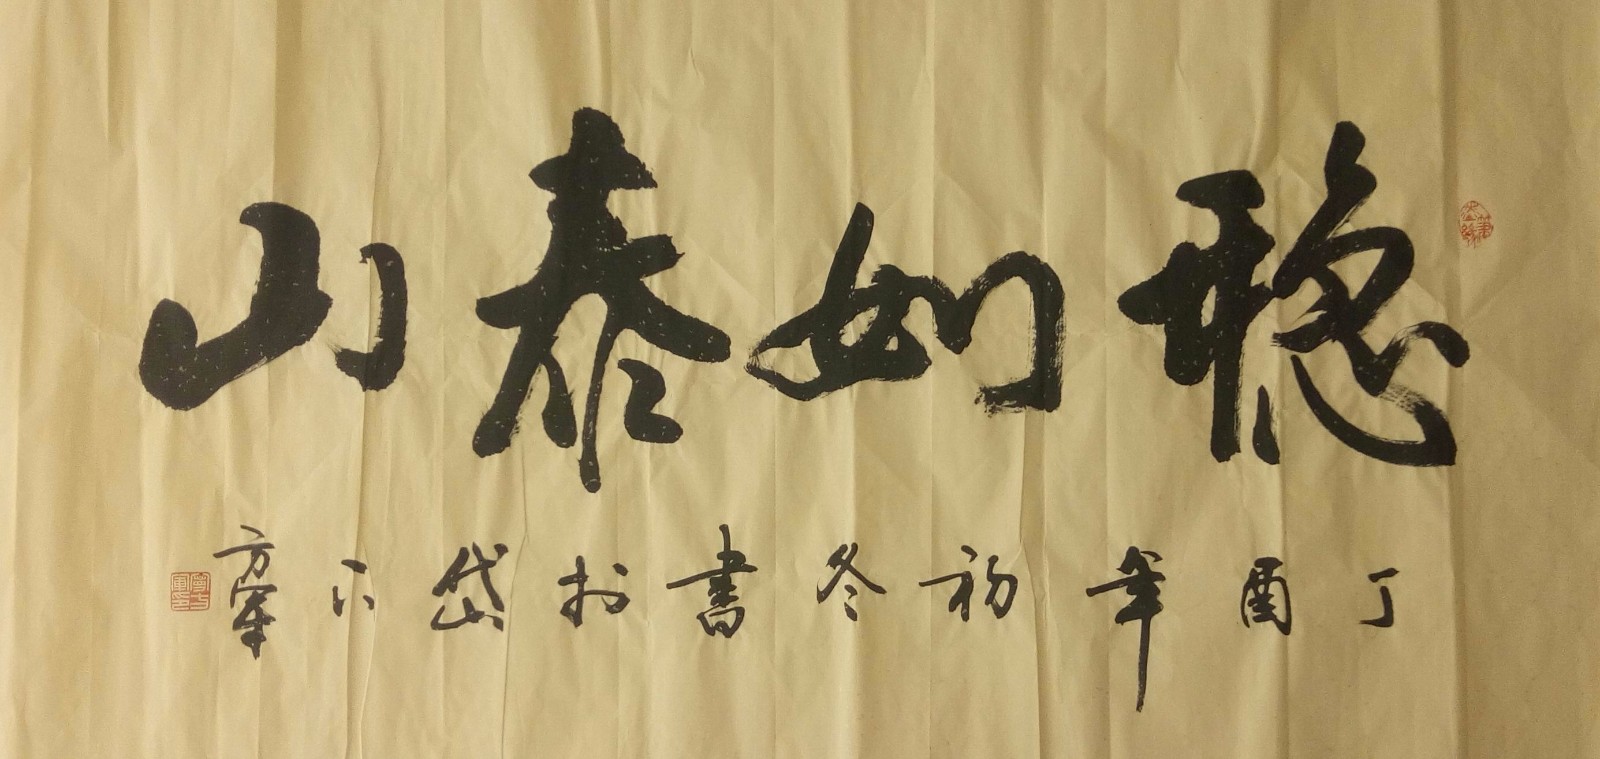 稳如泰山
丁酉年初冬書於岱下方军